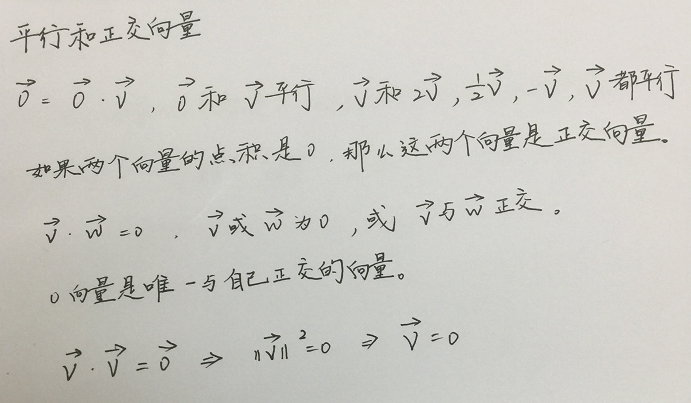 平行和正交向量
$\vec{0} = \vec{0} \cdot \vec{v}$ , $\vec{0}$ 和 $\vec{v}$ 平行 , $\vec{v}$ 和 $2\vec{v}$ , $\frac{1}{2}\vec{v}$ , $-\vec{v}$ , $\vec{v}$ 都平行
如果两个向量的点积是0 , 那么这两个向量是正交向量。
$\vec{v} \cdot \vec{w} = 0$ , $\vec{v}$ 或 $\vec{w}$ 为0 , 或 $\vec{v}$ 与 $\vec{w}$ 正交 。
0向量是唯一与自己正交的向量。
$\vec{v} \cdot \vec{v} = \vec{0} \Rightarrow \|\vec{v}\|^2 = 0 \Rightarrow \vec{v} = 0$